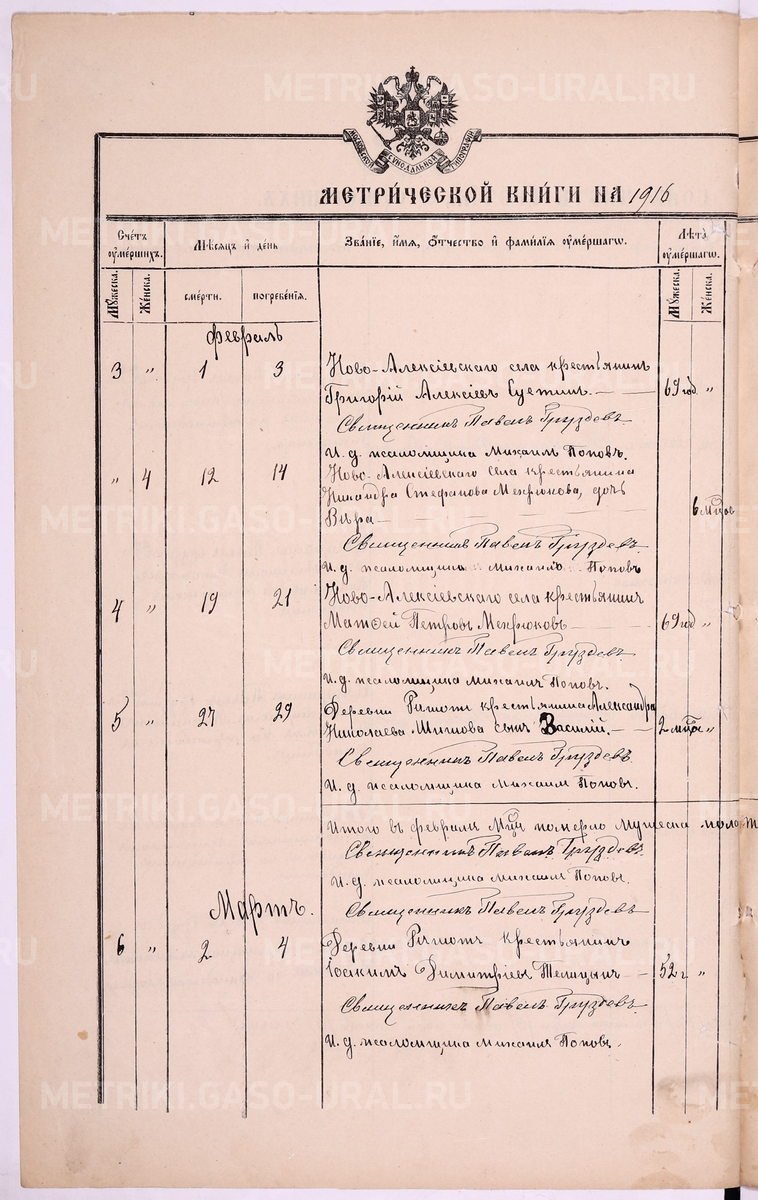 METRIKI.GASO-URAL.RU
МОСКОВСКОЙ СѴНОДАЛЬНОЙ ТИПОГРАФІИ
МЕТРИ́ЧЕСКОЙ КНИ́ГИ НА 1916
Счётъ ᲂумéршихъ.
Мѣсяцъ и день
Звáнїе, и́мя, ѻ́тчество и фамѝлїя ᲂумéршагѡ.
Лѣтà ᲂумéршагѡ.
Мꙋ́жеска.
Жéнска.
смéрти.
погребéнїя.
Мꙋ́жеска.
Жéнска.
Февраль
3 " 1 3 Ново-Алексіевскаго села крестьянинъ
Григорій Алексіевъ Суетинъ. — 69 год. "
Священникъ Павелъ Груздевъ
И. д. псаломщика Михаилъ Поповъ.
" 4 12 14 Ново-Алексіевскаго села крестьянина
Никандра Стефанова Мехрюкова, дочь
Вѣра — 6 мцов
Священникъ Павелъ Груздевъ
И. д. псаломщика Михаилъ Поповъ
4 " 19 21 Ново-Алексіевскаго села крестьянинъ
Матѳей Петровъ Мехрюковъ — 69 год "
Священникъ Павелъ Груздевъ
И. д. псаломщика Михаилъ Поповъ.
5 " 27 29 Деревни крестьянина Александра
Николаева сынъ Василій. — 2 мца "
Священникъ Павелъ Груздевъ
И. д. псаломщика Михаилъ Поповъ.
Итого въ февралѣ мцѣ померло мужеска
Священникъ Павелъ Груздевъ
И. д. псаломщика Михаилъ Поповъ.
Мартъ. Священникъ Павелъ Груздевъ
6 " 2 4 Деревни крестьянинъ
Іоакимъ Димитріевъ Телицынъ — 52 г. "
Священникъ Павелъ Груздевъ
И. д. псаломщика Михаилъ Поповъ.